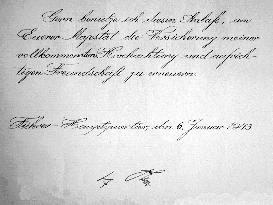 Gern benutze ich diesen Anlaß, um
Euerer Majestät die Versicherung meiner
vollkommensten Hochachtung und aufrich-
tigen Freundschaft zu erneuern.
Führer-Hauptquartier, den 6. Januar 1943